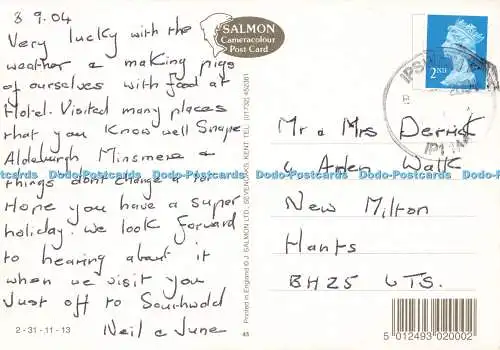 8 9.04
Very lucky with the
weather & making pigs
of ourselves with food at
Hotel. Visited many places
that you know well Snape
Aldeburgh Minsmere &
things dont change a lot
Hope you have a super
holiday. We look forward
to hearing about it
when we visit you
Just off to Southwold
Neil & June
2-31-11-13
SALMON
Cameracolour
Post Card
Printed in England © J. SALMON LTD., SEVENOAKS, KENT TEL. (01732) 452381
45
2ND
Mr & Mrs Derrick
4 Arden Walk
New Milton
Hants
BH25
5 012493 020002
Dodo-Postcards Dodo-Postcards Dodo-Postcards Dodo-Postcards Dodo-Postcards